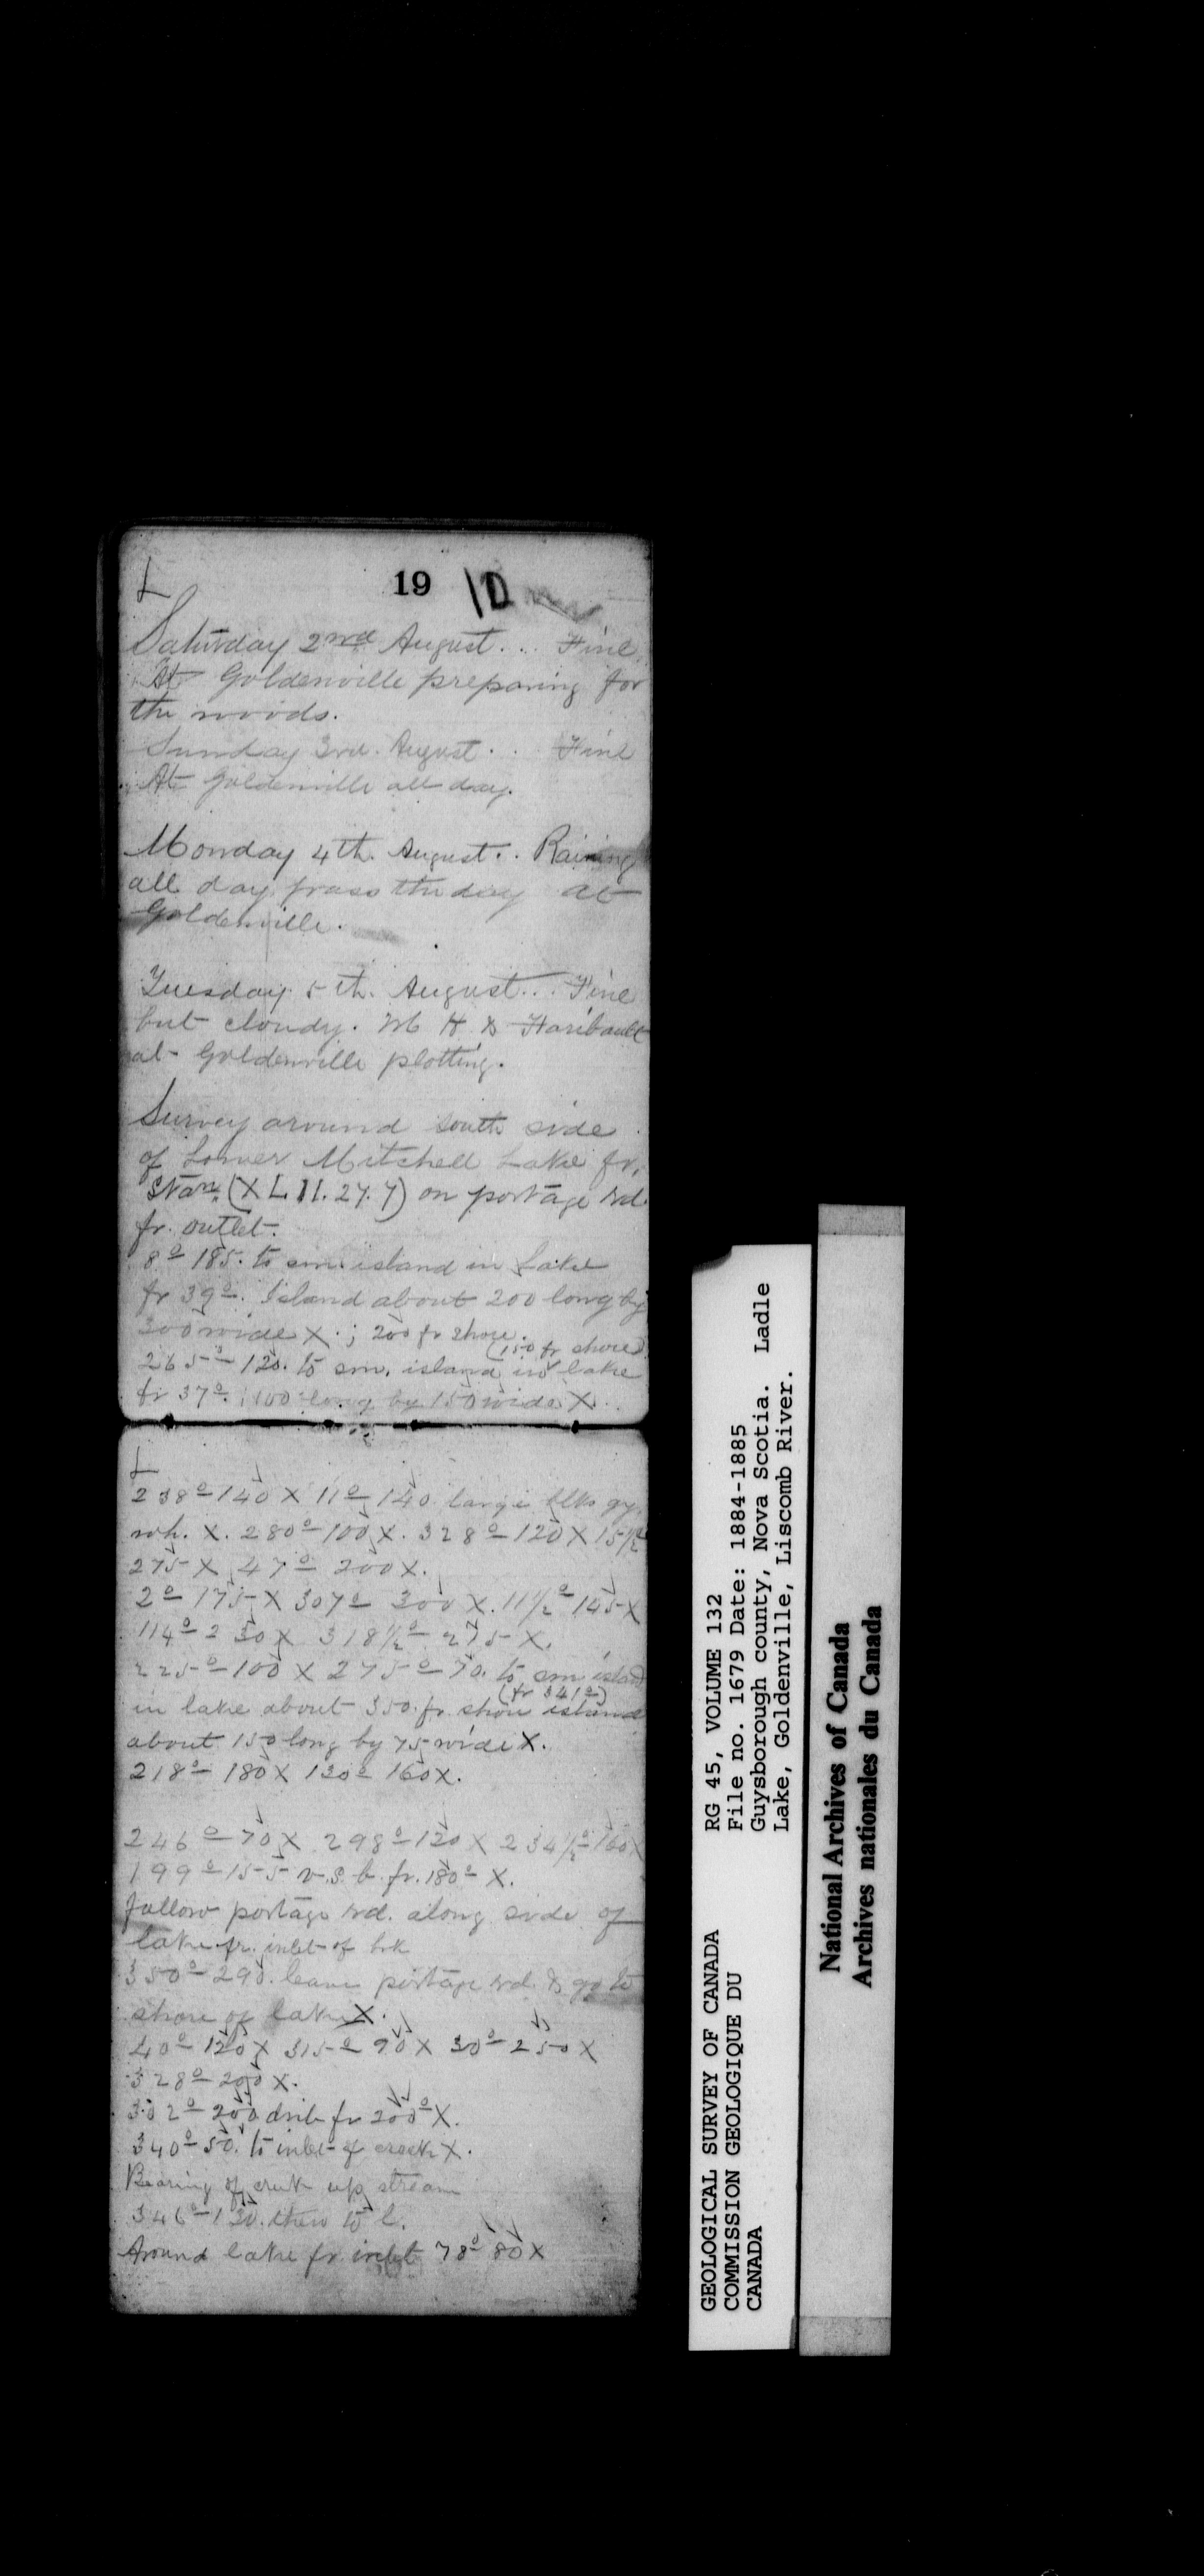 L
19
10
Saturday 2nd August... Fine
At Goldenville preparing for
the woods.
Sunday 3rd. August.. Fine
At Goldenville all day.
Monday 4th. August.. Raining
all day pass the day at
Goldenville.
Tuesday 5th. August... Fine
but cloudy. M H & Faribault
at Goldenville plotting.
Survey around south side
of Lower Mitchell Lake fr.
Statn. (X L II. 27. 7) on portage rd.
fr. outlet.
8° 185. to sm. island in Lake
fr 39°. Island about 200 long by
300 wide X.; 200 fr shore.
(150 fr shore)
265° 120. to sm. island in lake
fr 37°. 100 long by 150 wide X.
L
238° 140 X 11° 140 large blks gy.
wh. X. 280° 100 X. 328° 120 X 15½°
275 X 47° 200 X.
2° 175 X 307° 300 X. 11½° 145 X
114° 230 X 318½° 275 X.
225° 100 X 275° 70. to sm island
(fr 341°)
in lake about 350 fr. shore island
about 150 long by 75 wide X.
218° 180 X 130° 160 X.
246° 70 X 298° 120 X 234½° 160 X
199° 155 v.s.b. fr. 180° X.
follow portage rd. along side of
lake fr. inlet of brk
350° 290. leave portage rd. & go to
shore of lake X.
40° 120 X 315° 90 X 30° 250 X
328° 200 X.
302° 200 fr 200° X.
340° 50. to inlet of creek X.
Bearing of creek up stream
346° 130. then to l.
Around lake fr. inlet 78° 80 X
GEOLOGICAL SURVEY OF CANADA
COMMISSION GEOLOGIQUE DU
CANADA
RG 45, VOLUME 132
File no. 1679 Date: 1884-1885
Guysborough county, Nova Scotia. Ladle
Lake, Goldenville, Liscomb River.
National Archives of Canada
Archives nationales du Canada